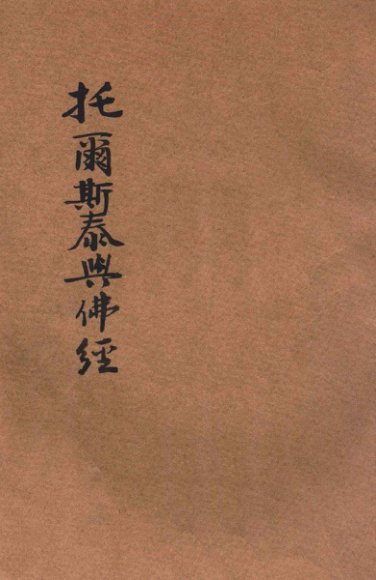 托爾斯泰與佛經